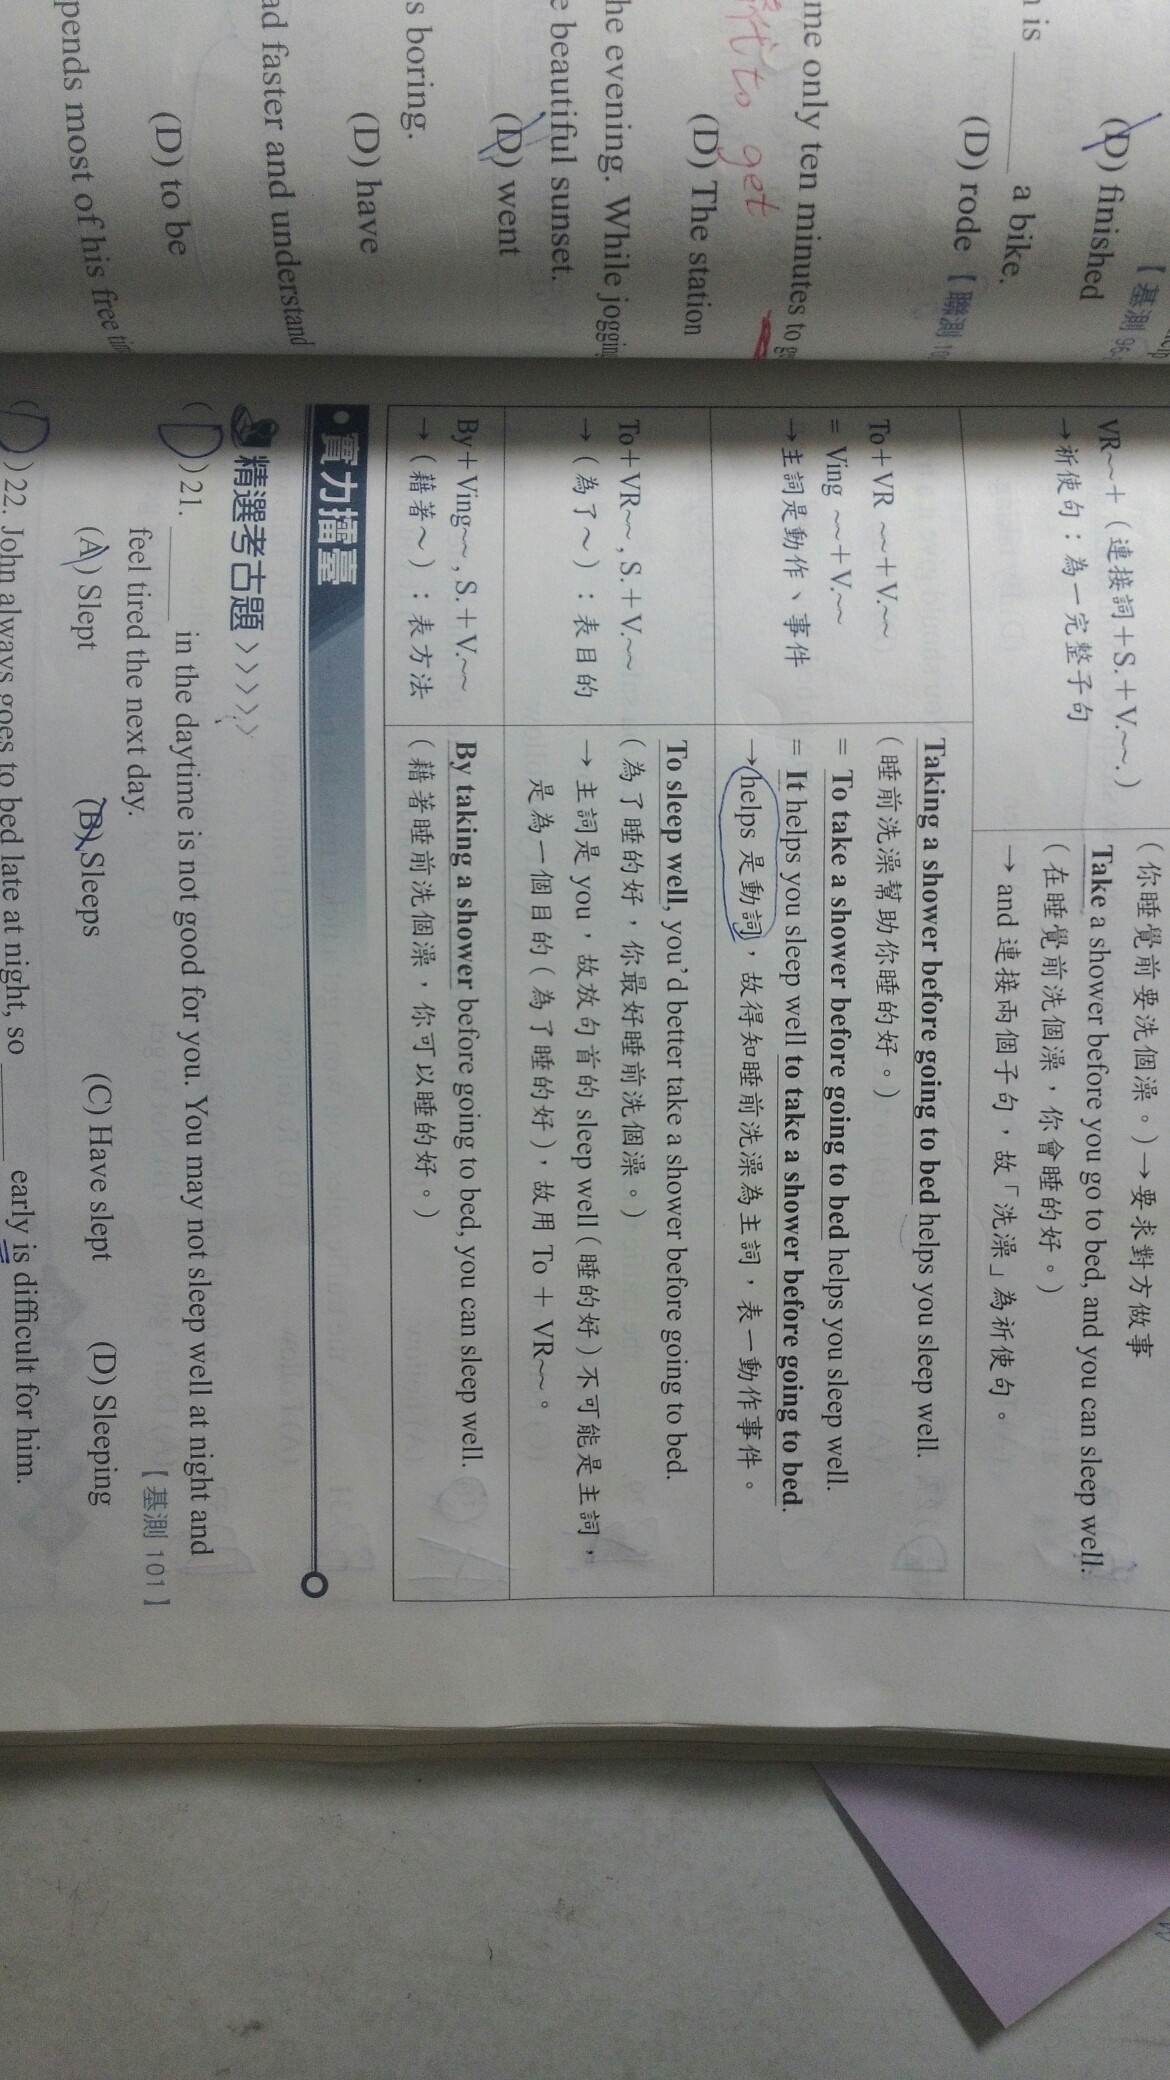 【基測 96
(D) finished
is ______ a bike.
(D) rode【聯測
me only ten minutes to
to get
(D) The station
he evening. While jogging
e beautiful sunset.
(D) went
s boring.
(D) have
ad faster and understand
(D) to be
pends most of his free
(你睡覺前要洗個澡。)→要求對方做事
VR~~+(連接詞+S.+V.~~.)
→祈使句:為一完整子句
Take a shower before you go to bed, and you can sleep well.
(在睡覺前洗個澡,你會睡的好。)
→ and 連接兩個子句,故「洗澡」為祈使句。
To+VR ~~+V.~~
= Ving ~~+V.~~
→主詞是動作、事件
Taking a shower before going to bed helps you sleep well.
(睡前洗澡幫助你睡的好。)
= To take a shower before going to bed helps you sleep well.
= It helps you sleep well to take a shower before going to bed.
→helps 是動詞,故得知睡前洗澡為主詞,表一動作事件。
To+VR~~, S.+V.~~
→(為了~):表目的
To sleep well, you'd better take a shower before going to bed.
(為了睡的好,你最好睡前洗個澡。)
→主詞是 you,故放句首的 sleep well(睡的好)不可能是主詞,
是為一個目的(為了睡的好),故用 To + VR~~。
By+Ving~~, S.+V.~~
→(藉著~):表方法
By taking a shower before going to bed, you can sleep well.
(藉著睡前洗個澡,你可以睡的好。)
實力擂臺
精選考古題 >>>>>
( D )21. ______ in the daytime is not good for you. You may not sleep well at night and
feel tired the next day.【基測 101】
(A) Slept (B) Sleeps (C) Have slept (D) Sleeping
( D )22. John always goes to bed late at night, so ______ early is difficult for him.